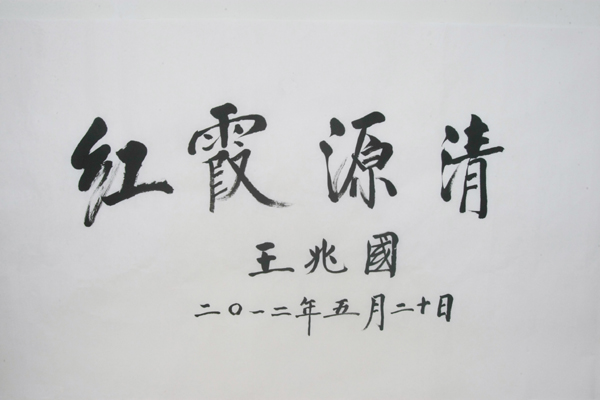 红霞源清
王兆國
二〇一二年五月二十日